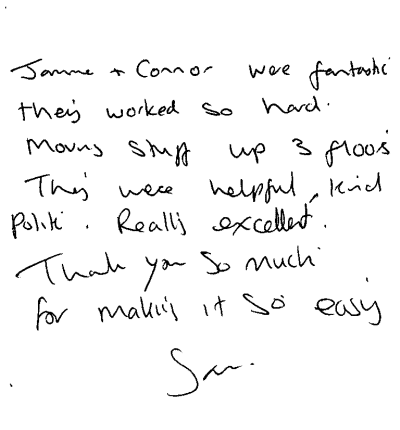 + Connor were fantastic
they worked so hard.
Moving stuff up 3 floors
They were helpful, kind
polite. Really excellent.
Thank you so much
for making it so easy